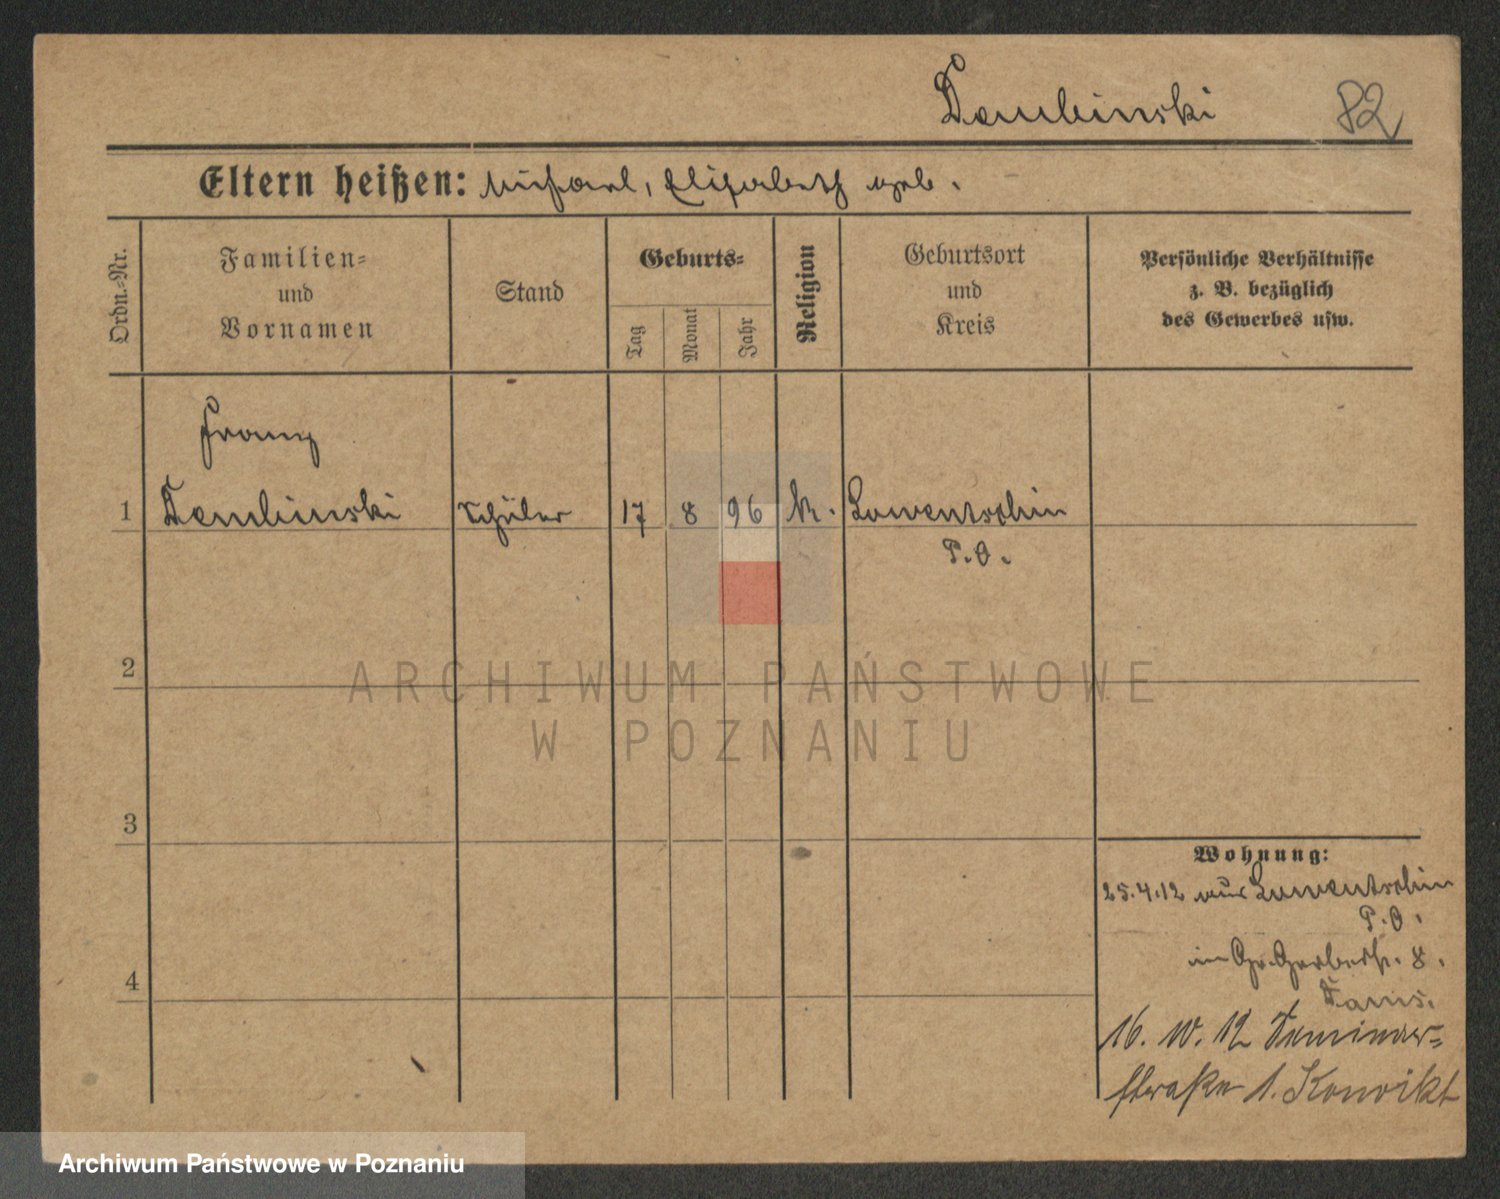 Dembinski 82
Eltern heißen: Michael, Elisabeth geb.
Ordn.-Nr.
Familien-
und
Vornamen
Stand
Geburts-
Tag
Monat
Jahr
Religion
Geburtsort
und
Kreis
Persönliche Verhältnisse
z. B. bezüglich
des Gewerbes usw.
Franz
1 Dembinski Schüler 17 8 96 k. Lawentschin
P.O.
2
ARCHIWUM PAŃSTWOWE
W POZNANIU
3
Wohnung:
25.4.12 aus Lawentschin
P.O.
in Gr. Gerberstr. 8.
4
16. 10. 12 Seminar-
straße 1. Konvikt
Archiwum Państwowe w Poznaniu